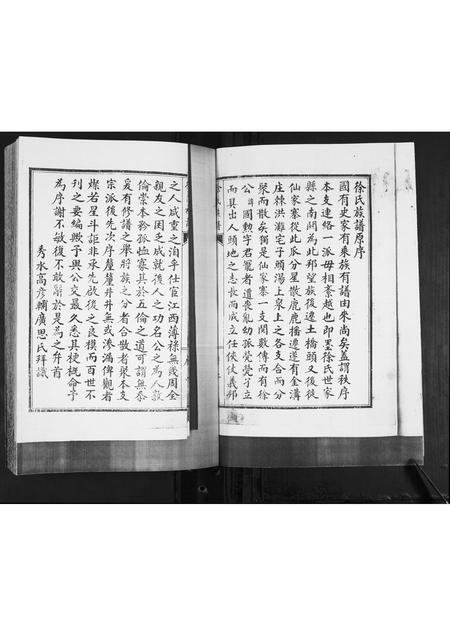 徐氏族譜原序
國有史家有乘族有譜由來尚矣蓋謂秩序
本支連絡一派毋相紊越也即墨徐氏世家
縣之南關為此邦望族後遷土橋頭又後徙
仙家寨從此瓜分星散鹿鹿播遷遂有金溝
庄棘洪灘宅子頭湖上泉上之各支合而分
聚而散矣獨是仙家寨一支閱數傳而有徐
公諱國勳字君寵者遭喪亂幼孤煢煢孑立
而具出人頭地之志長而成立任俠仗義邦
之人咸重之洎乎仕宦江西薄祿無幾周全
親友之困乏成就後人之功名公之為人敦
倫崇本矜孤恤寡其於五倫之道可謂無忝
爰有修譜之舉將族之分者合散者聚本支
宗派後先次序釐釐井井無或滲漏俾觀者
燦若星斗詎非承先啟後之良模而百世不
刊之要編歟予與公交最久悉其梗概命予
為序謝不敏復不敢辭於是為之弁首
秀水高彥輔廣思氏拜識